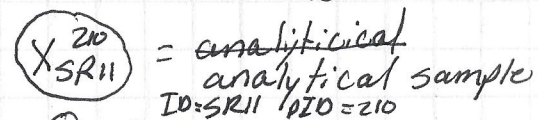 X 210 SR11 = analyticical
analytical sample
ID=SR11 PID=210